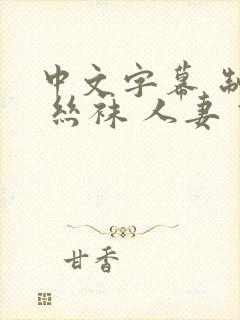 中文字幕 制
丝袜 人妻
甘香